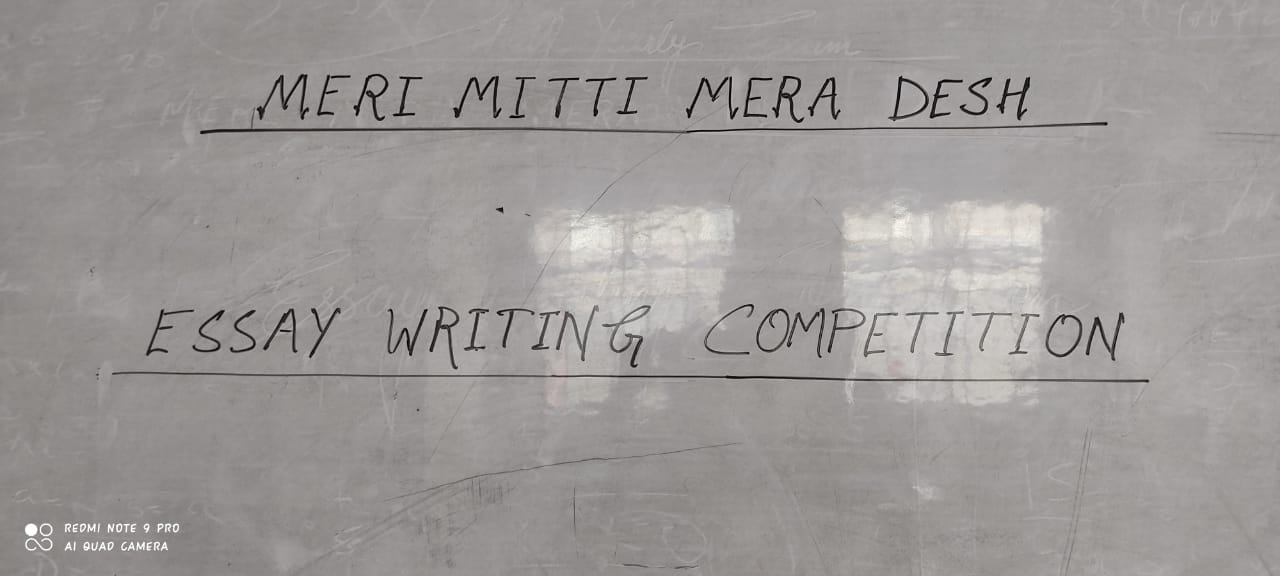 MERI MITTI MERA DESH
ESSAY WRITING COMPETITION
REDMI NOTE 9 PRO
AI QUAD CAMERA